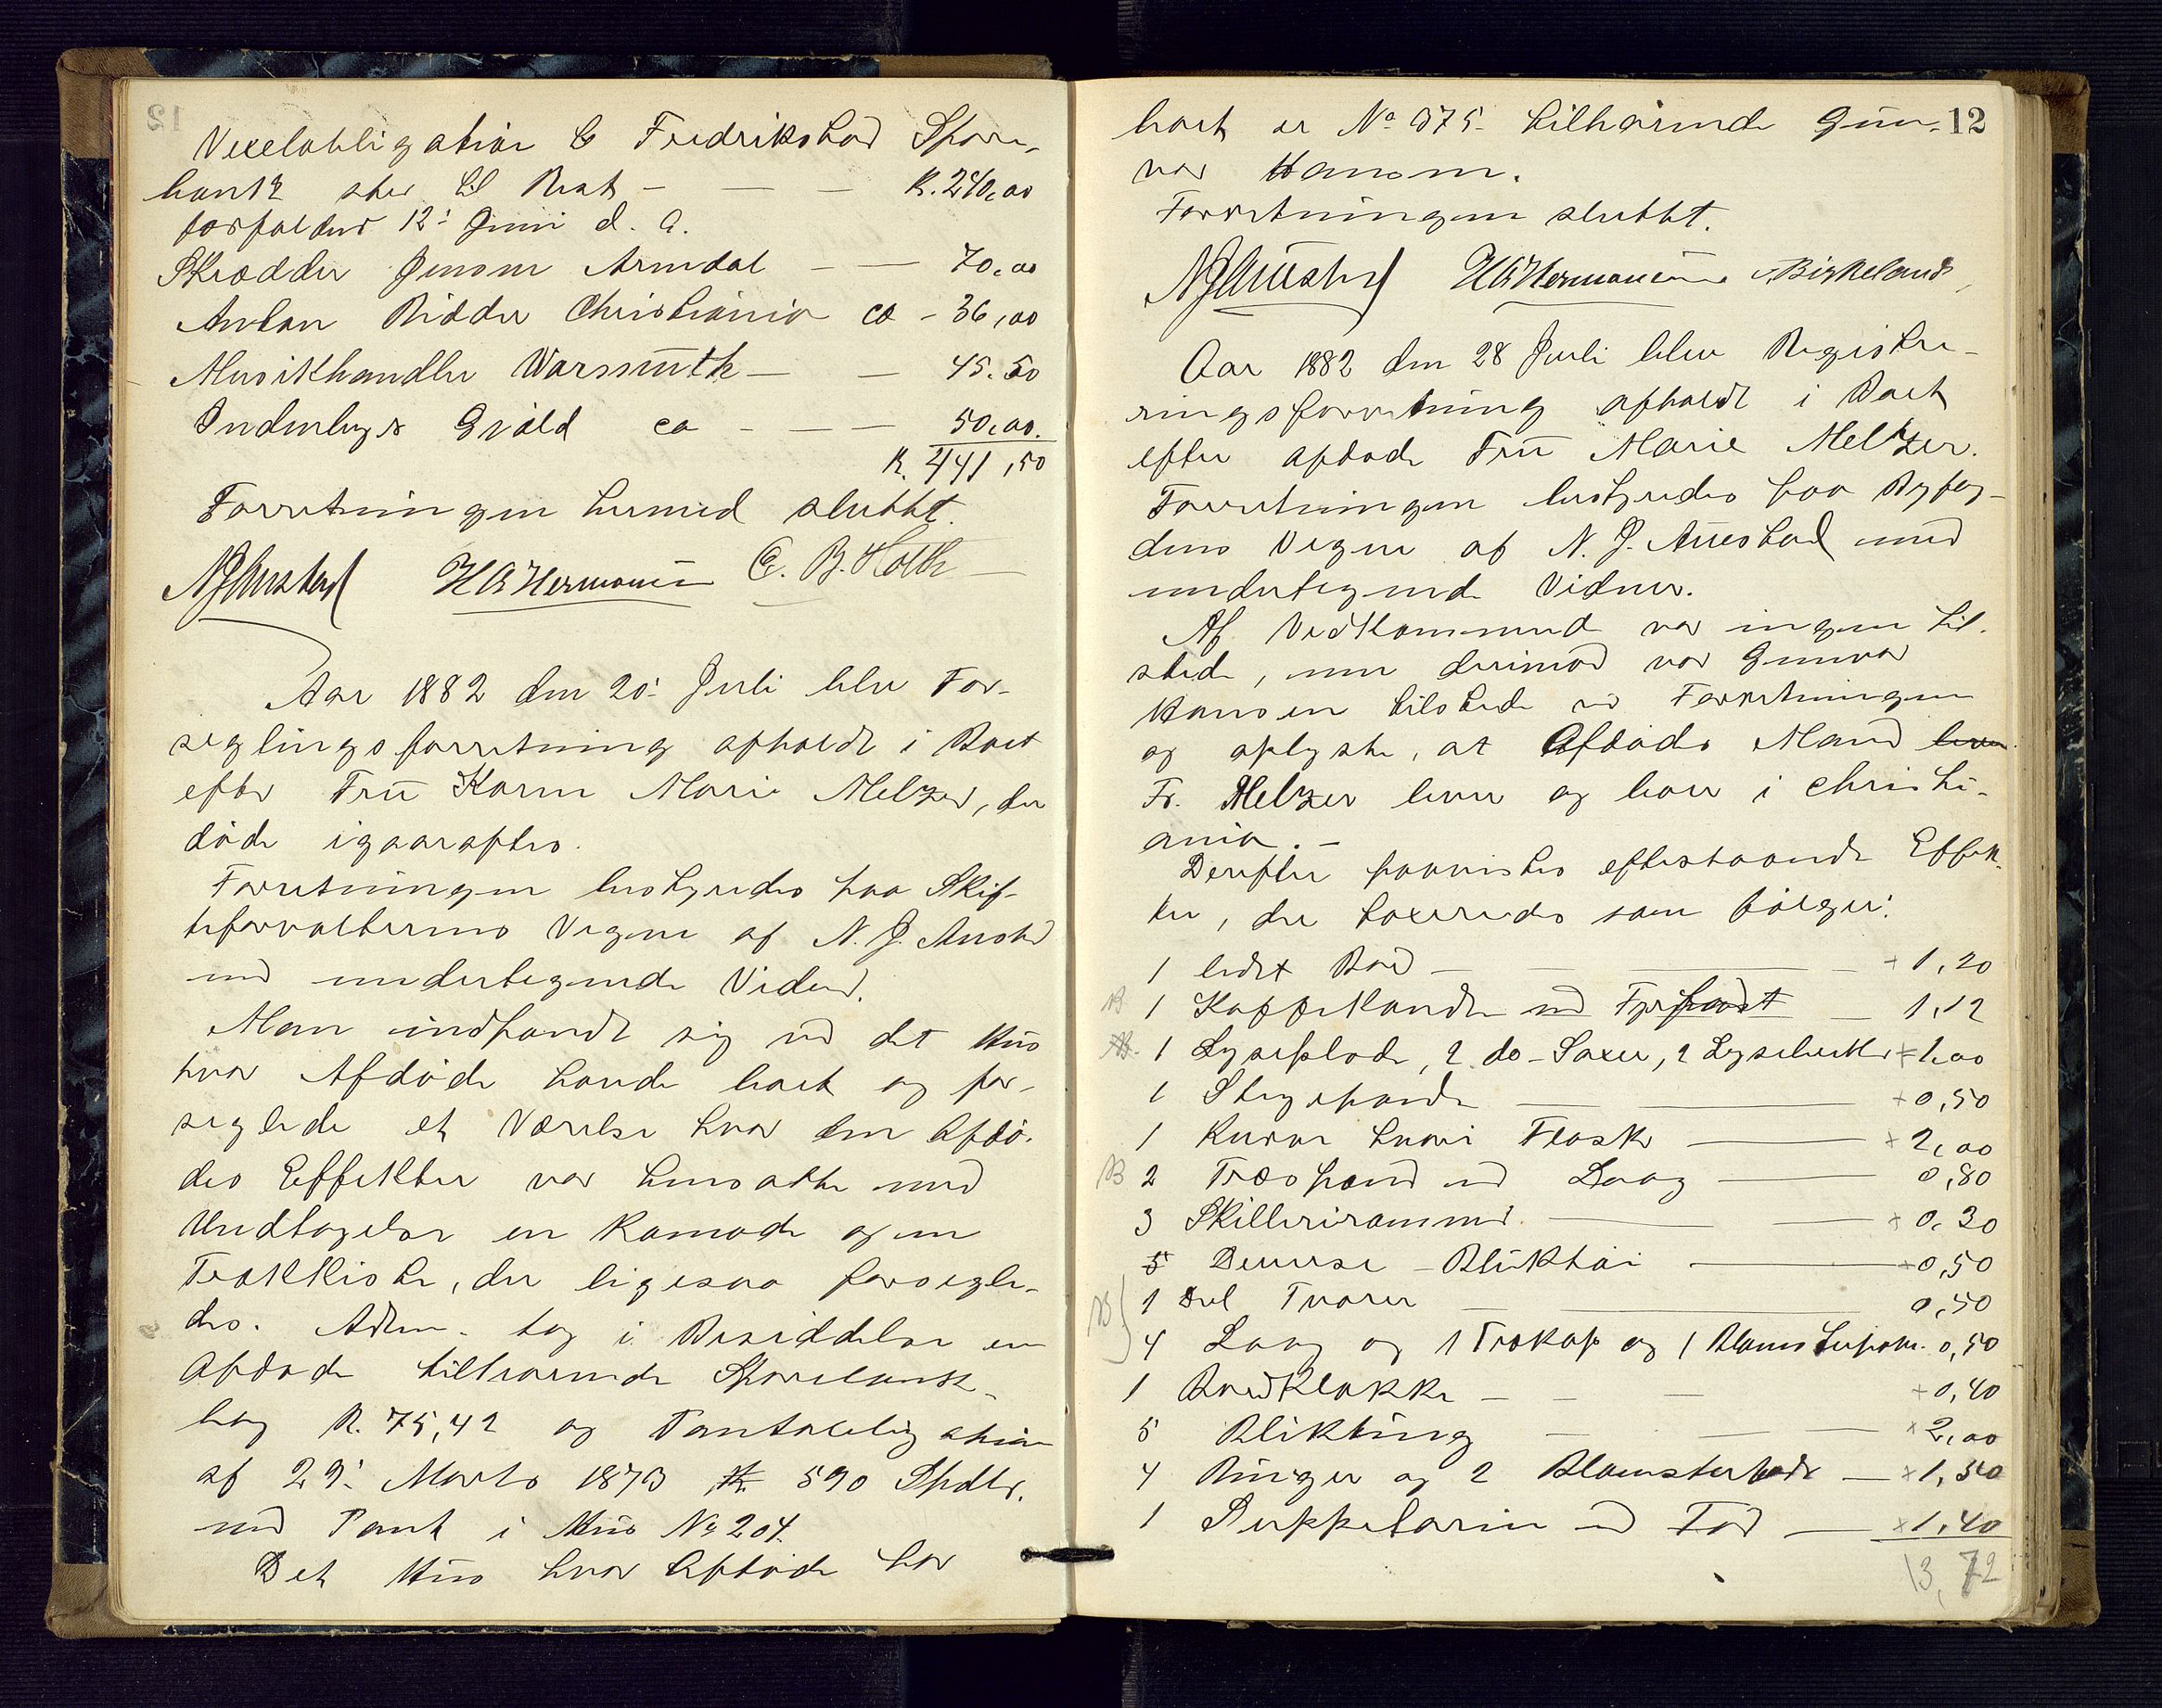 Vexelobligation to Fredrikstad Spare-
bank stor til Rest - - - K. 240,00
forfalder 12' Juni d. A.
Skrædder Jensen Arendal - - 70,00
Anton Ridder Christiania ca - 36,00
Musikhandler Warsmuth - - 45.50
Indenbys Gjæld ca - - - 50,00.
K. 441,50
Forretningen hermed sluttet.
NJAuestad HAHermansen E. B. Holth
Aar 1882 den 20' Juli blev For-
seglingsforretning afholdt i Boet
efter Fru Karen Marie Melzer, der
døde igaaraftes.
Forretningen bestyredes paa Skif-
teforvalterens Vegne af N. J. Auestad
med undertegnede Vidner.
Man indfandt sig ved det Hus
hvor Afdøde havde boet og for-
seglede et Værelse hvor den Afdø-
des Effekter var hensatte med
Undtagelse en Komode og en
Trækkiste, der ligesaa forsegle-
des. Adm. tog i Besiddelse en
Afdøde tilhørende Sparebank-
bog K. 75,42 og Pantobligation
af 29' Marts 1873 592 Spdlr.
med Pant i Hus No 204.
Det Hus hvor Afdøde har
12
boet er No 375 tilhørende Gun-
vor Hansen.
Forretningen sluttet.
NJAuestad HAHermansen Birkeland
Aar 1882 den 28 Juli blev Registre-
ringsforretning afholdt i Boet
efter afdøde Fru Marie Melzer.
Forretningen bestyredes paa Byfog-
dens Vegne af N. J. Auestad med
undertegnede Vidner.
Af Vedkommende var ingen til-
stede, men derimod var Gunvor
Hansen tilstede ved Forretningen
og oplyste, at Afdødes Mand lever
Fr. Melzer lever og boer i Christi-
ania. -
Derefter paavistes efterstaaende Effek-
ter, der taxeredes som følger:
1 lidet Bord - + 1,20
B 1 Kaffekande med Fyrfadt - 1,12
1 Lyseplade, 2 do - Saxer, 2 Lysestker + 1,00
1 Stegepande + 0,50
1 Kurv hvori Flasker + 2,00
B 2 Træspand med Laag 0,80
3 Skillerirammer + 0,20
5 Diverse Bliktøi + 0,50
B 1 Del Tvarer 0,50
4 Laag og 1 Trækop og 1 Blomsterpotte 0,50
1 Bordklokke - - - + 0,40
5 Blikting - - + 2,00
4 Ringer og 2 Blomsterbade - + 1,50
1 Suppeterin med Fad - x 1,40
13,72